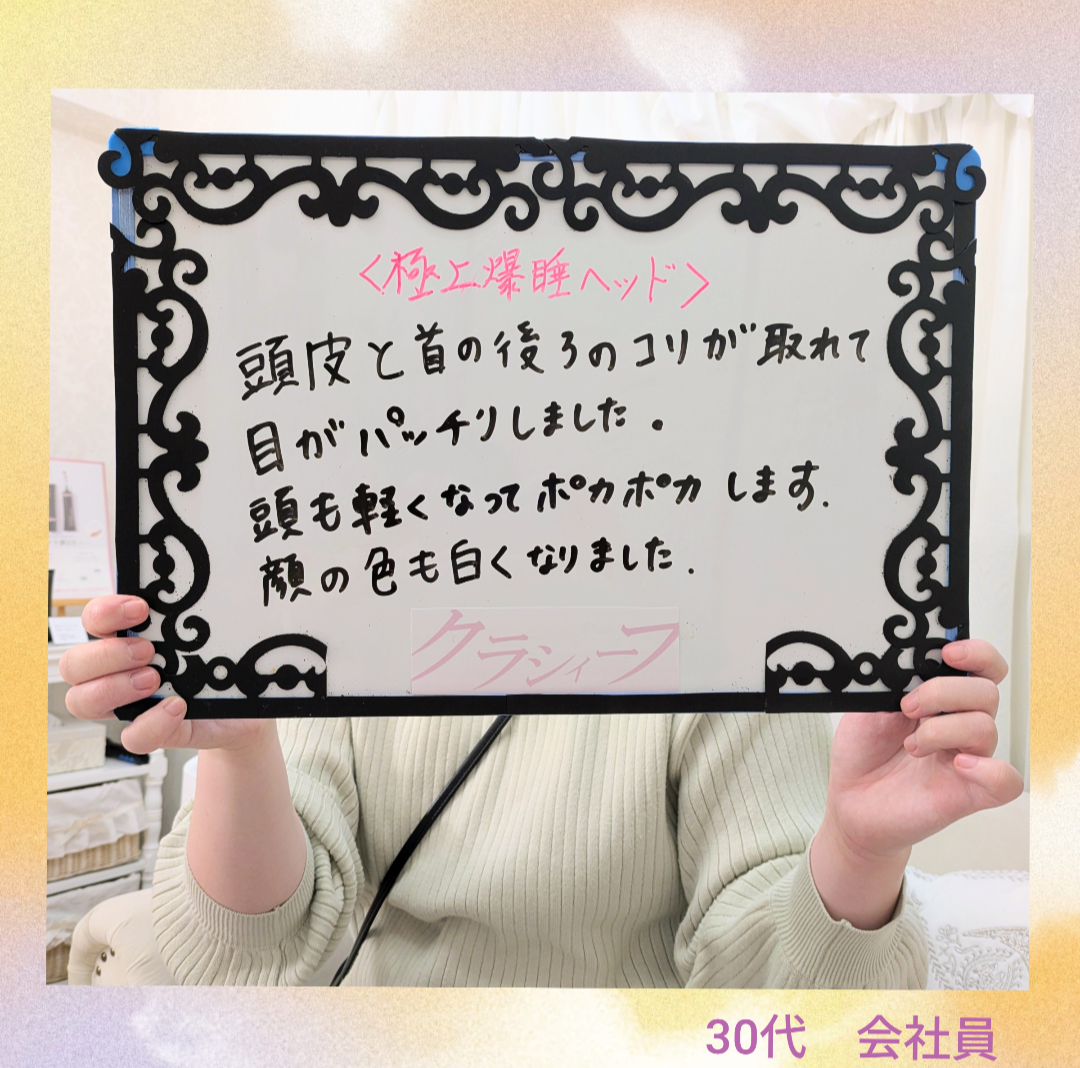 <極上爆睡ヘッド>
頭皮と首の後ろのコリが取れて
目がパッチリしました。
頭も軽くなってポカポカします.
顔の色も白くなりました.
クラシィーフ
30代 会社員